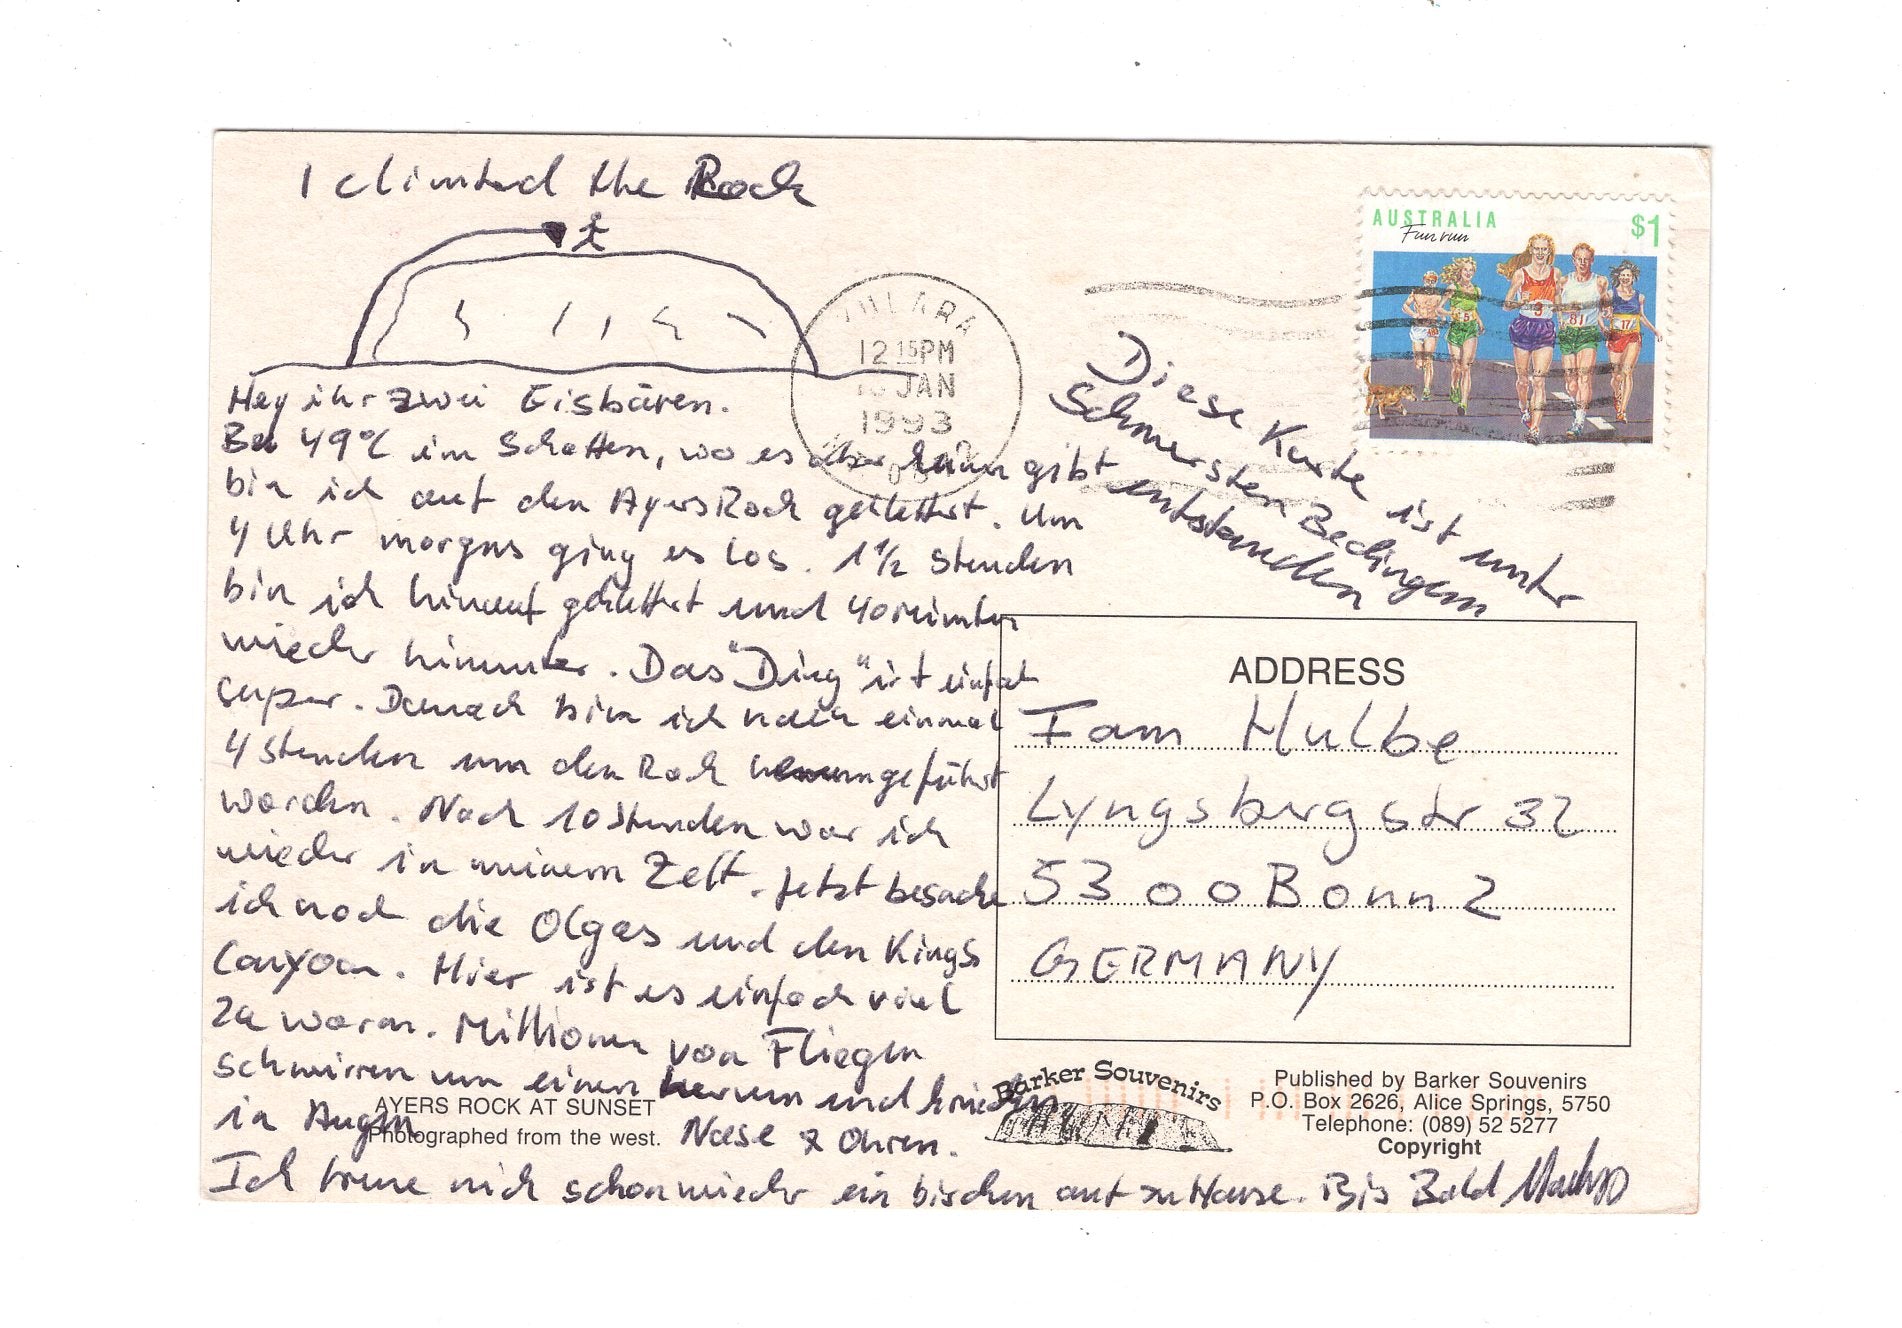 I climbed the Rock
Hey ihr zwei Eisbären.
Bei 49°C im Schatten, wo es aber kein gibt
bin ich auf den Ayers Rock geklettert. Um
4 Uhr morgens ging es los. 1 1/2 Stunden
bin ich hinauf geklettert und 40 Minuten
wieder hinunter. Das "Ding" ist einfach
super. Danach bin ich noch einmal
4 Stunden um den Rock herumgeführt
worden. Nach 10 Stunden war ich
wieder in meinem Zelt. Jetzt besuche
ich noch die Olgas und den Kings
Canyon. Hier ist es einfach viel
zu warm. Millionen von Fliegen
schwirren um einen herum und kriechen
in Augen Nase & Ohren.
Ich freue mich schon wieder ein bischen auf zu Hause. Bis Bald
AYERS ROCK AT SUNSET
Photographed from the west.
YULARA
12 15PM
JAN
1993
Diese Karte ist unter
Schwersten Bedingungen
entstanden
AUSTRALIA
$1
Fun run
5
3
81
17
ADDRESS
Fam Hulbe
Lyngsbergstr 32
5300 Bonn 2
GERMANY
Barker Souvenirs
Published by Barker Souvenirs
P.O. Box 2626, Alice Springs, 5750
Telephone: (089) 52 5277
Copyright